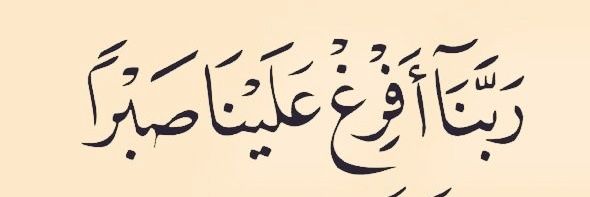 رَبَّنَآ أَفْرِغْ عَلَيْنَا صَبْرًا